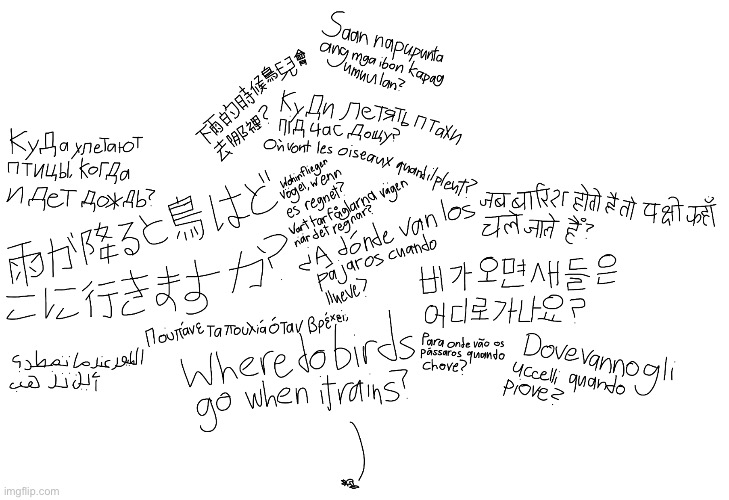 Saan napupunta
ang mga ibon kapag
umuulan?
下雨的時候鳥兒會
去哪裡?
Куди летять птахи
під час дощу?
Où vont les oiseaux quand il pleut?
Куда улетают
птицы, когда
идет дождь?
Wohin fliegen
Vögel, wenn
es regnet?
Vart tar fåglarna vägen
när det regnar?
जब बारिश होती है तो पक्षी कहाँ
चले जाते हैं?
雨が降ると鳥はど
こに行きますか?
¿A dónde van los
pajaros cuando
llueve?
비가 오면 새들은
어디로 가나요?
Που πάνε τα πουλιά όταν βρέχει;
Where do birds
go when it rains?
Para onde vão os
pássaros quando
chove?
Dove vanno gli
uccelli quando
piove?
imgflip.com